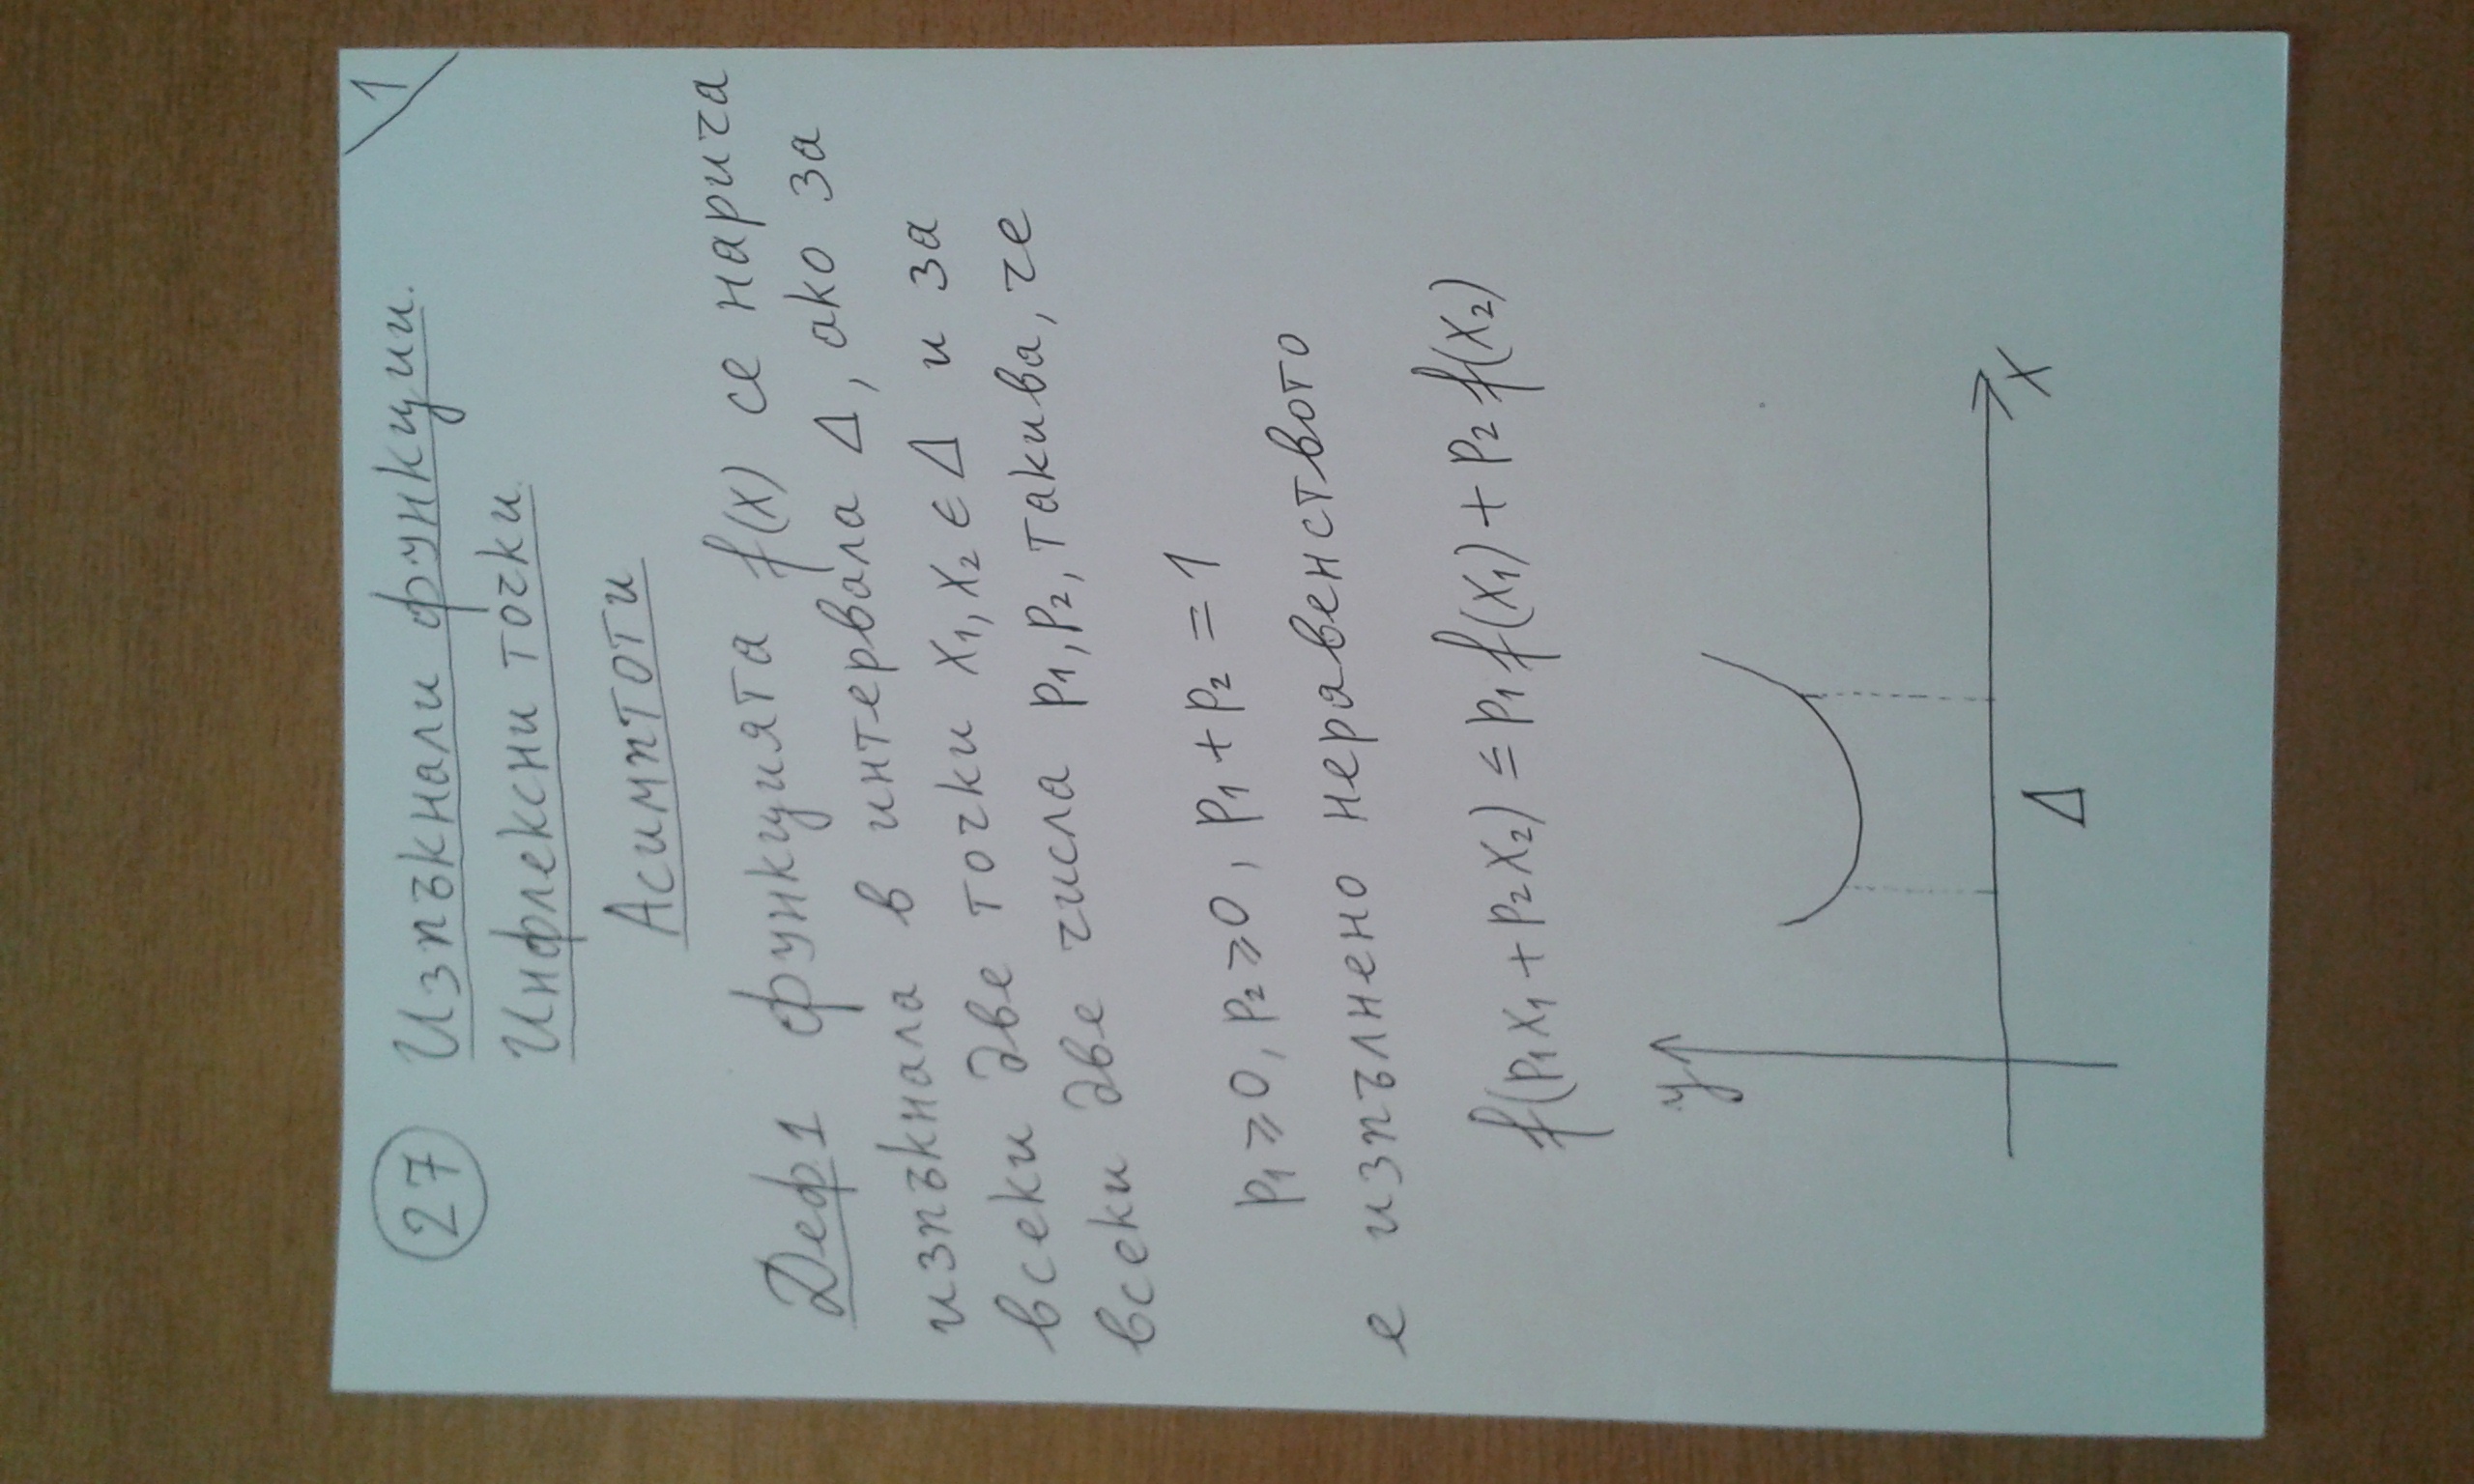 1
27 Изпъкнали функции.
Инфлексни точки.
Асимптоти
Деф 1 функцията f(x) се нарича
изпъкнала в интервала Δ, ако за
всеки две точки x₁, x₂ ∈ Δ и за
всеки две числа p₁, p₂, такива, че
p₁ ≥ 0, p₂ ≥ 0, p₁ + p₂ = 1
е изпълнено неравенството
f(p₁x₁ + p₂x₂) ≤ p₁ f(x₁) + p₂ f(x₂)
y
x
Δ